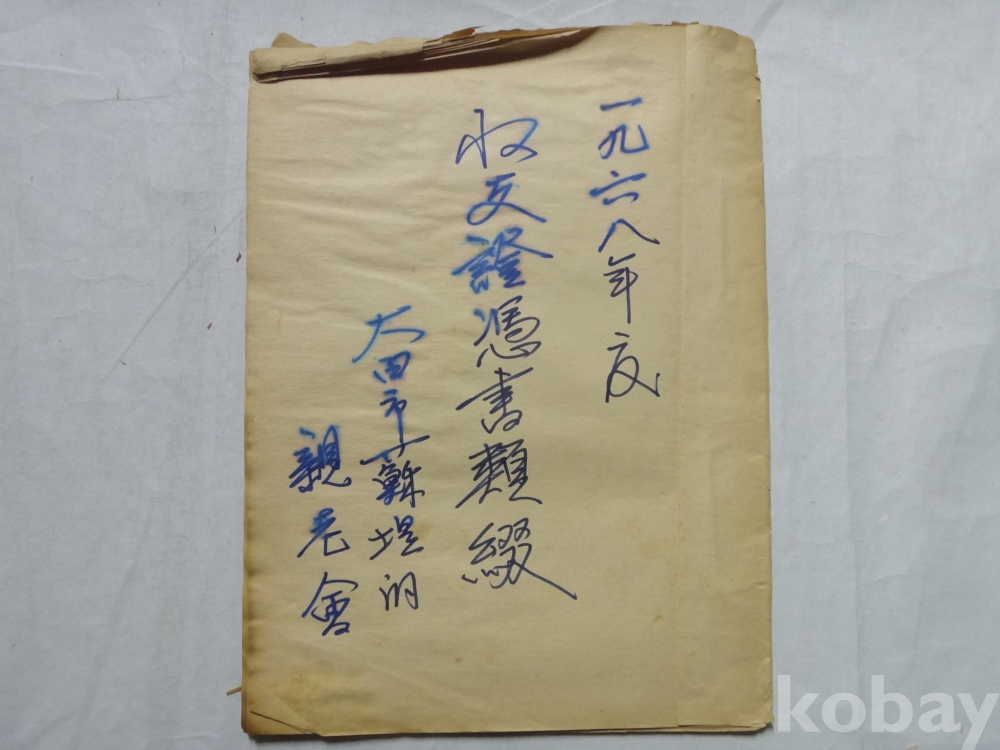 一九六八年度
收支證憑書類綴
大田市蘇堤洞
親老會
kobay